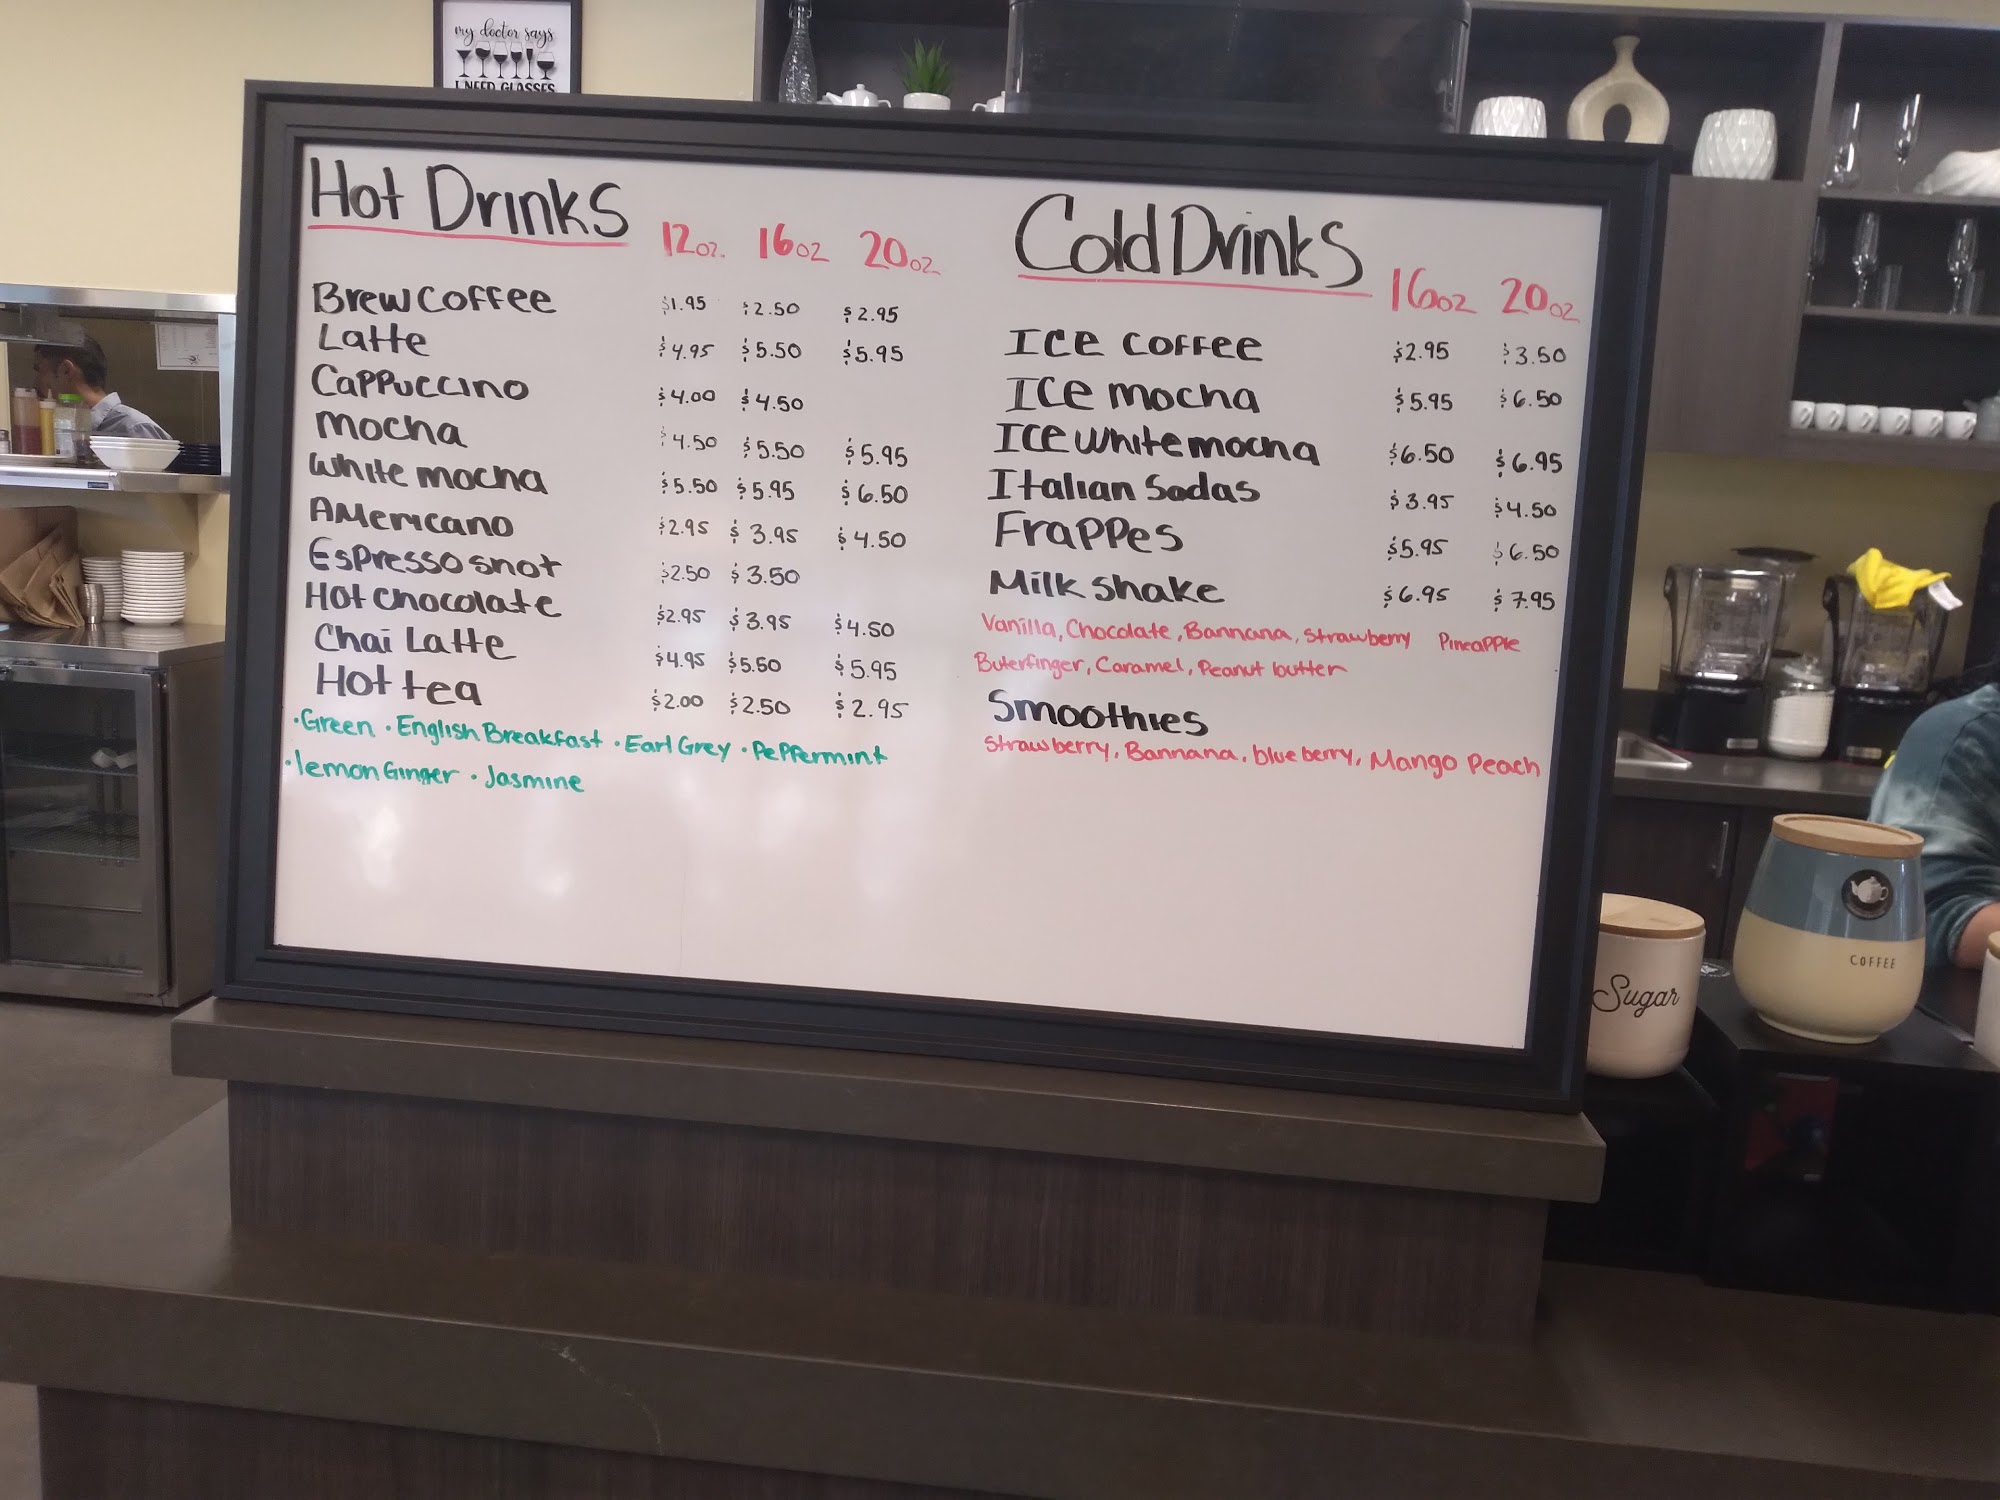 my doctor says
I NEED GLASSES
Hot Drinks 12oz. 16oz 20oz
Brew Coffee $1.95 $2.50 $2.95
Latte $4.95 $5.50 $5.95
Cappuccino $4.00 $4.50
Mocha $4.50 $5.50 $5.95
White mocha $5.50 $5.95 $6.50
Americano $2.95 $3.95 $4.50
Espresso shot $2.50 $3.50
Hot Chocolate $2.95 $3.95 $4.50
Chai Latte $4.95 $5.50 $5.95
Hot tea $2.00 $2.50 $2.95
·Green ·English Breakfast ·Earl Grey ·Peppermint
·lemon Ginger ·Jasmine
Cold Drinks 16oz 20oz
Ice coffee $2.95 $3.50
Ice mocha $5.95 $6.50
Ice white mocha $6.50 $6.95
Italian Sodas $3.95 $4.50
Frappes $5.95 $6.50
Milk shake $6.95 $7.95
Vanilla, Chocolate, Bannana, Strawberry Pineapple
Buterfinger, Caramel, Peanut butter
Smoothies
Strawberry, Bannana, blueberry, Mango Peach
Sugar
COFFEE